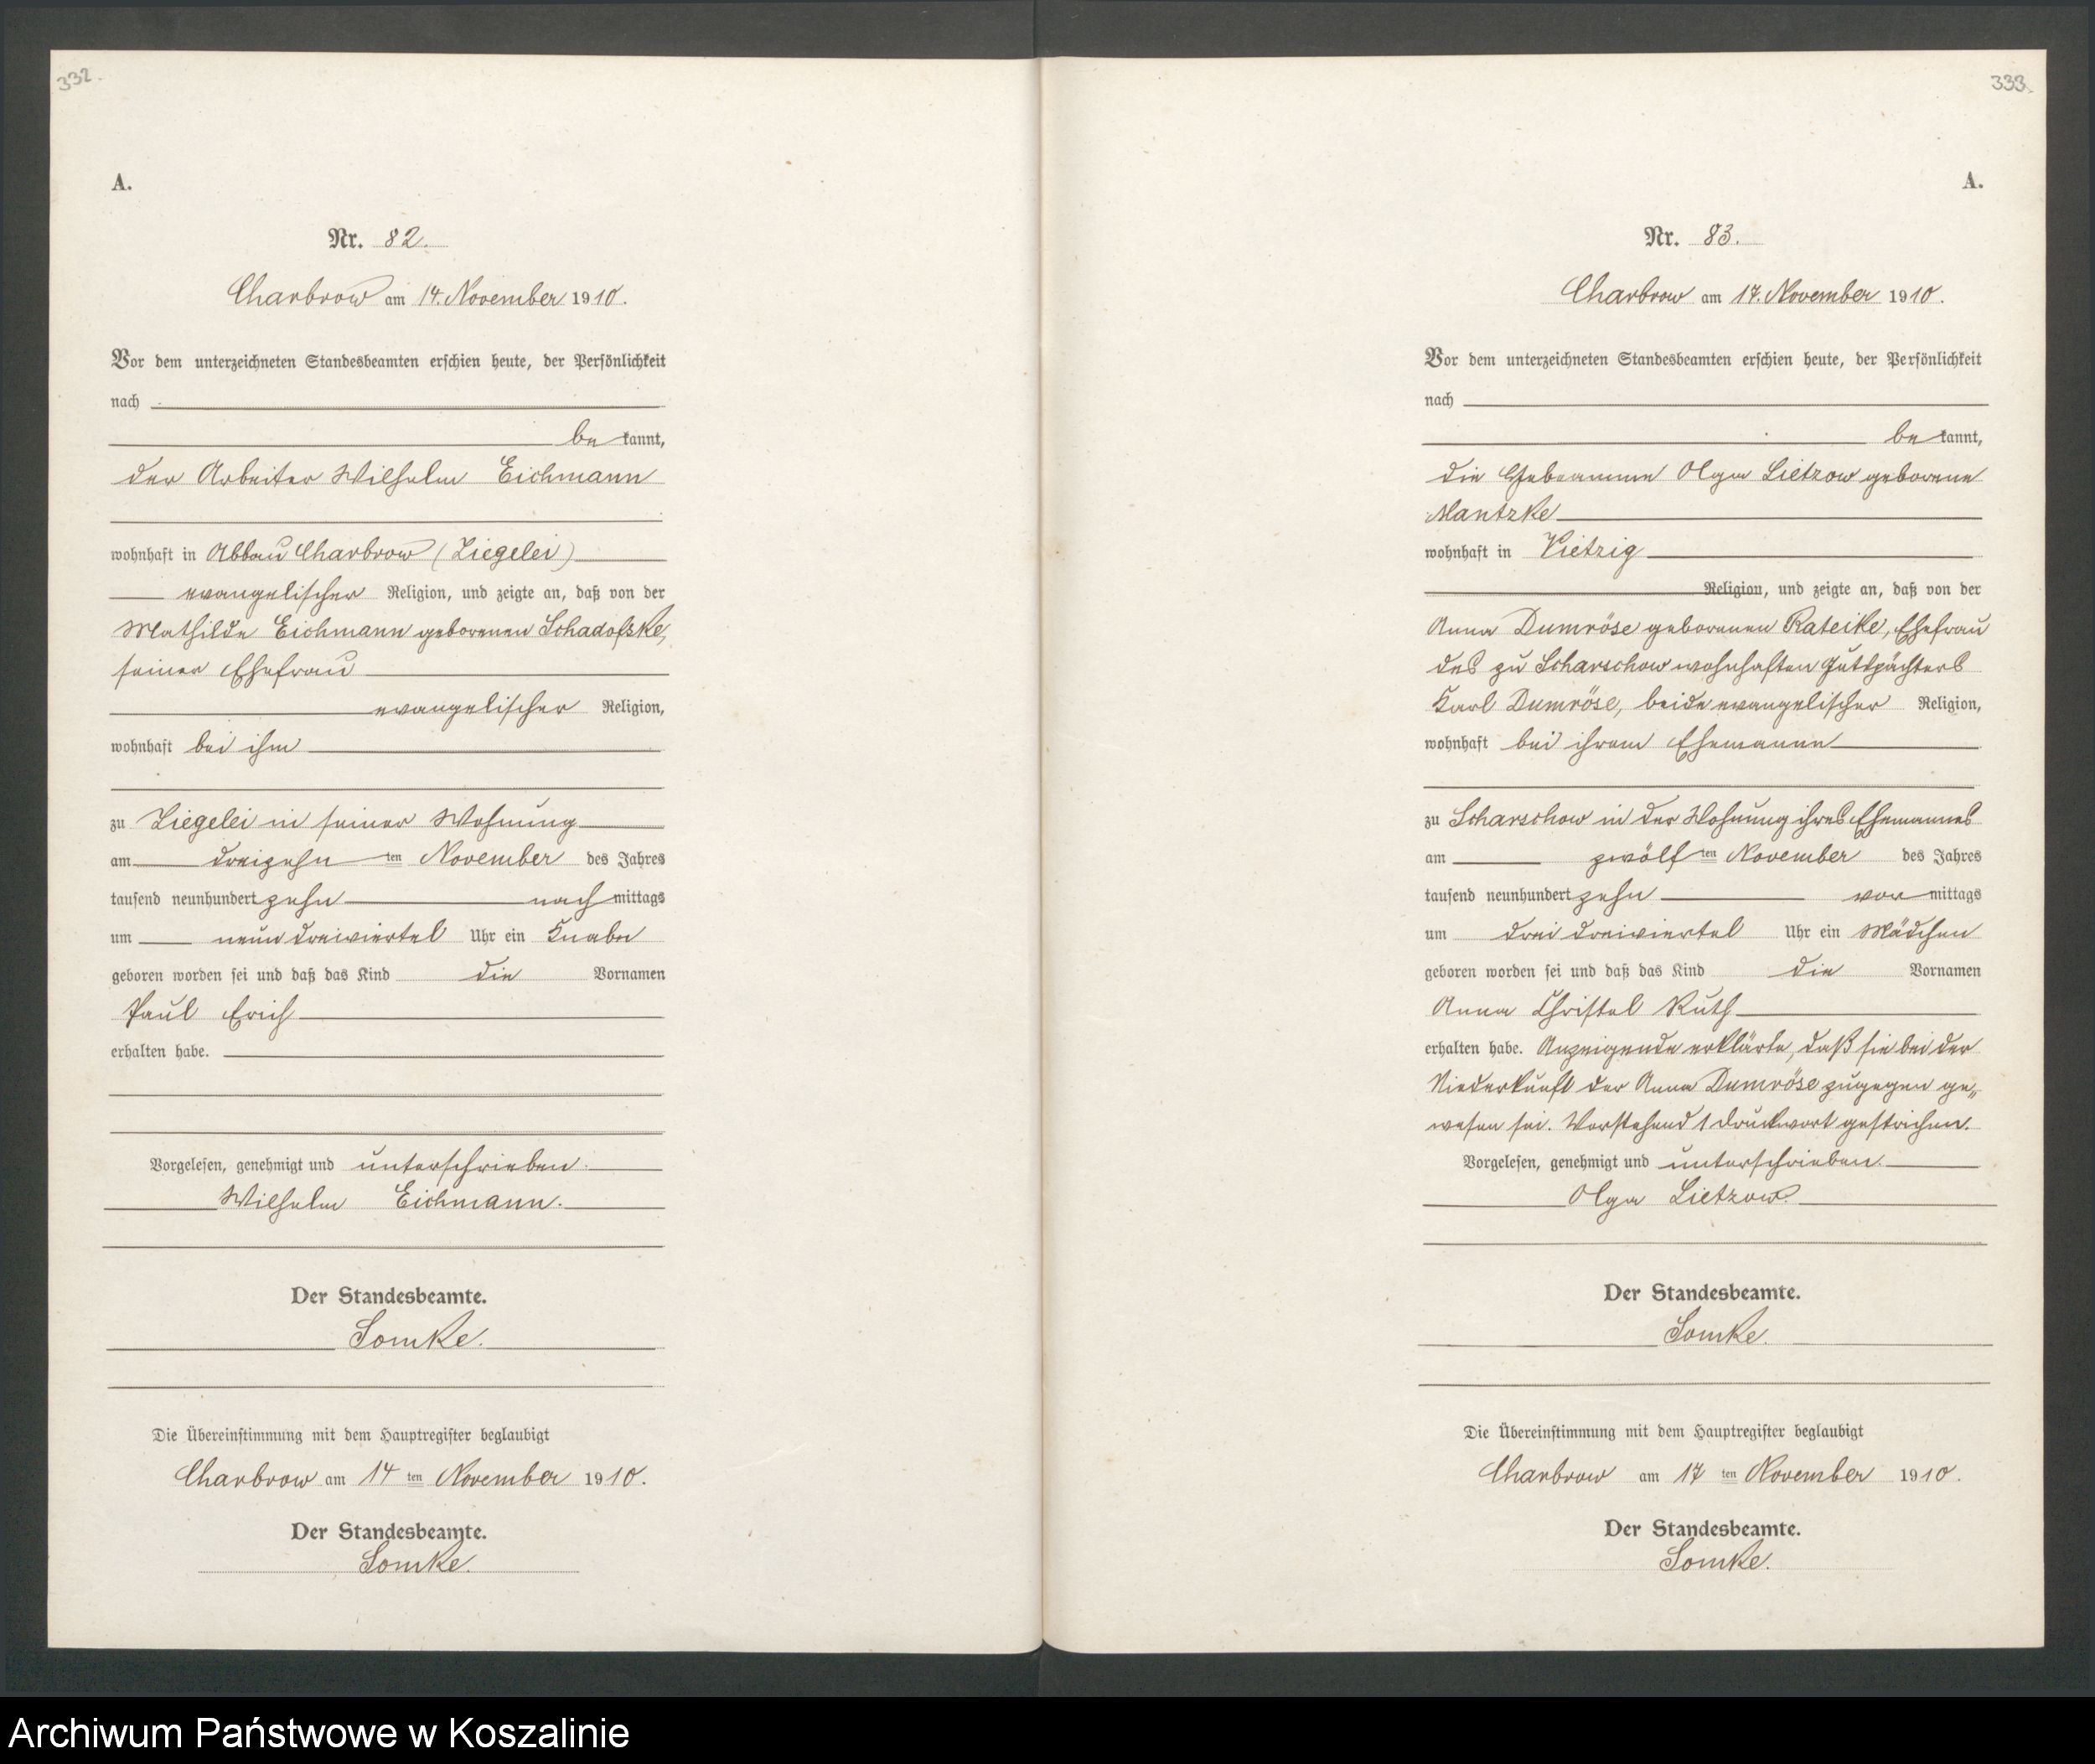 332.
A.
Nr. 82.
Charbrow am 14. November 1910.
Vor dem unterzeichneten Standesbeamten erschien heute, der Persönlichkeit
nach
be kannt,
der Arbeiter Wilhelm Eichmann
wohnhaft in Abbau Charbrow (Ziegelei)
evangelischer Religion, und zeigte an, daß von der
Mathilde Eichmann geborenen Schadofske,
seiner Ehefrau
evangelischer Religion,
wohnhaft bei ihm
zu Ziegelei in seiner Wohnung
am dreizehn ten November des Jahres
tausend neunhundert zehn nach mittags
um neun dreiviertel Uhr ein Knabe
geboren worden sei und daß das Kind die Vornamen
Paul Erich
erhalten habe.
Vorgelesen, genehmigt und unterschrieben.
Wilhelm Eichmann.
Der Standesbeamte.
Somke.
Die Übereinstimmung mit dem Hauptregister beglaubigt
Charbrow am 14 ten November 1910.
Der Standesbeamte.
Somke.
333.
A.
Nr. 83.
Charbrow am 17. November 1910.
Vor dem unterzeichneten Standesbeamten erschien heute, der Persönlichkeit
nach
be kannt,
die Hebeamme Olga Lietzow geborene
Mantzke
wohnhaft in Vietzig
Religion, und zeigte an, daß von der
Anna Dumröse geborenen Rateike, Ehefrau
des zu Scharschow wohnhaften Gutspächters
Karl Dumröse, beide evangelischer Religion,
wohnhaft bei ihrem Ehemanne
zu Scharschow in der Wohnung ihres Ehemannes
am zwölf ten November des Jahres
tausend neunhundert zehn vor mittags
um drei dreiviertel Uhr ein Mädchen
geboren worden sei und daß das Kind die Vornamen
Anna Christel Ruth
erhalten habe. Anzeigende erklärte, daß sie bei der
Niederkunft der Anna Dumröse zugegen ge„
wesen sei. Vorstehend 1 Druckwort gestrichen.
Vorgelesen, genehmigt und unterschrieben.
Olga Lietzow.
Der Standesbeamte.
Somke.
Die Übereinstimmung mit dem Hauptregister beglaubigt
Charbrow am 17 ten November 1910.
Der Standesbeamte.
Somke.
Archiwum Państwowe w Koszalinie